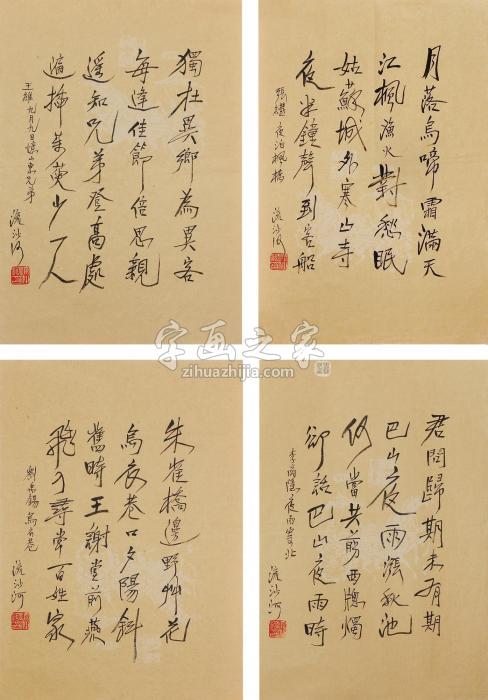 月落烏啼霜滿天
江楓漁火對愁眠
姑蘇城外寒山寺
夜半鐘聲到客船
張繼 夜泊楓橋
流沙河
獨在異鄉為異客
每逢佳節倍思親
遥知兄弟登高處
遍插茱萸少一人
王維 九月九日憶山東兄弟
流沙河
君問歸期未有期
巴山夜雨漲秋池
何當共剪西牕燭
卻話巴山夜雨時
李商隱 夜雨寄北
流沙河
朱雀橋邊野艸花
烏衣巷口夕陽斜
舊時王謝堂前燕
飛入尋常百姓家
劉禹錫 烏衣巷
流沙河
字画之家
zihuazhijia.com